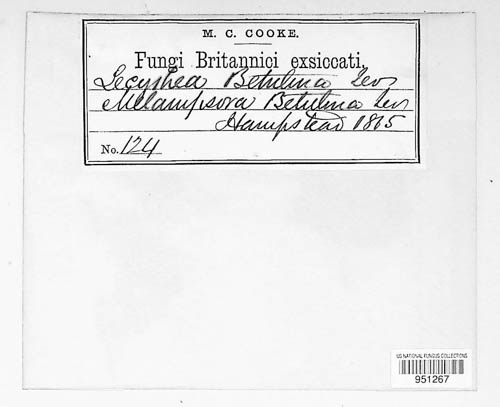 M. C. COOKE.
Fungi Britannici exsiccati.
Lecythea Betulina Lev
Melampsora Betulina Lev
Hampstead 1865
No. 124
US NATIONAL FUNGUS COLLECTIONS
951267